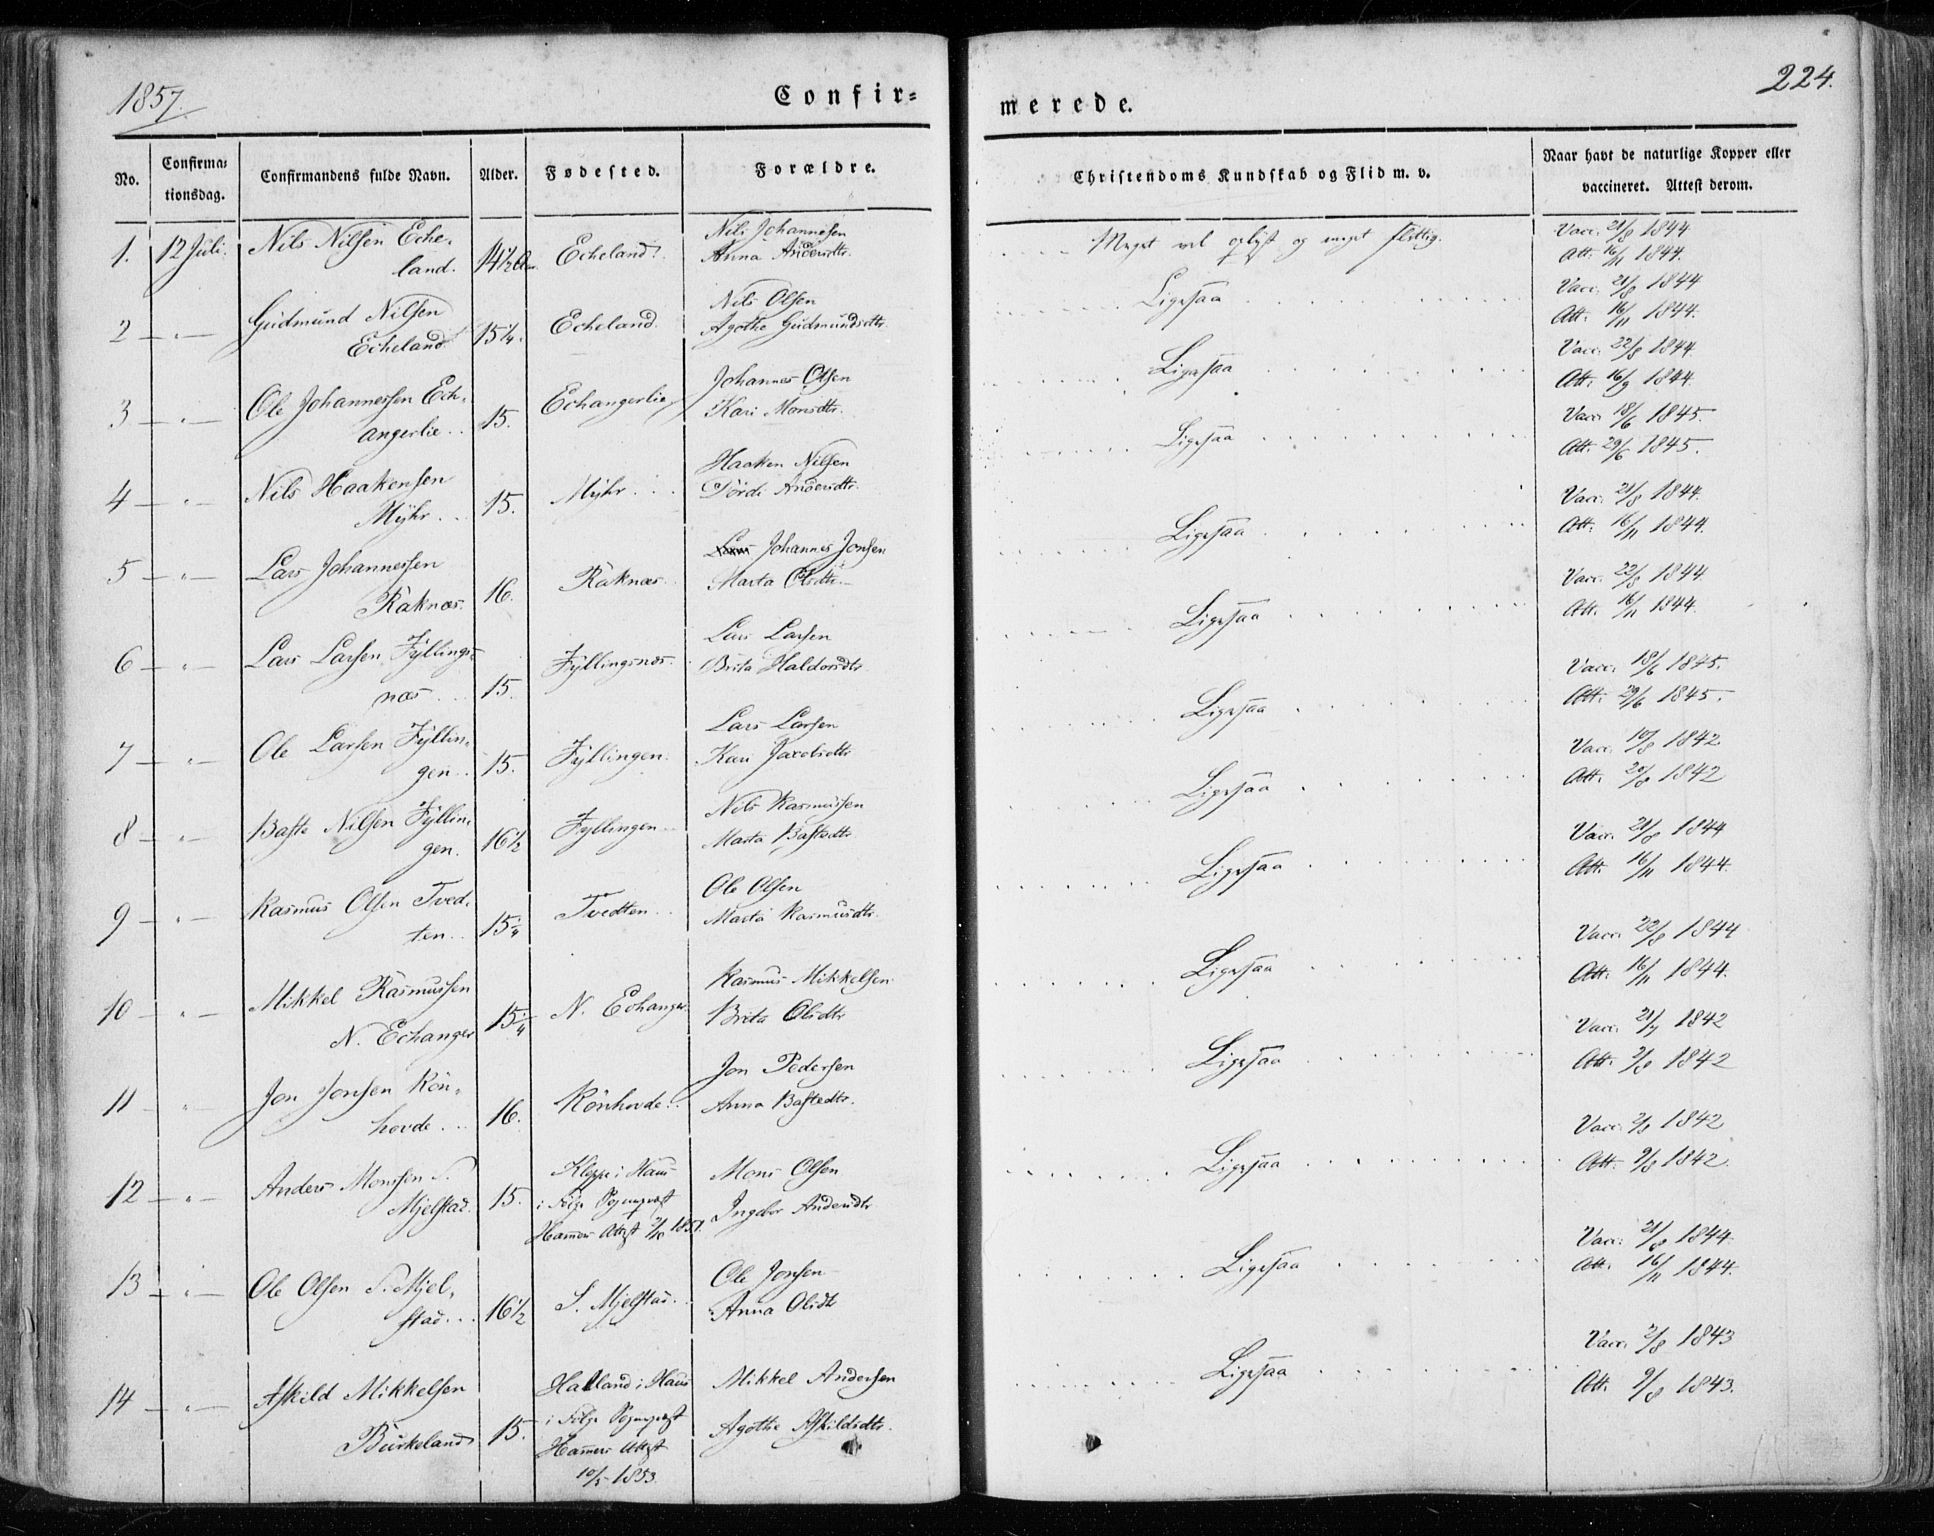 1857.
Confir=
merede.
224.
No.
Confirma=
tionsdag.
Confirmandens fulde Navn.
Alder.
Fødested.
Forældre.
Christendoms Kundskab og Flid m. v.
Naar havt de naturlige Kopper eller
vaccineret. Attest derom.
1. 12 Juli. Nils Nilsen Eche-
land. 14½ Echeland. Nils Johannesen
Anna Andersdtr. Meget vel oplyst og meget flittig. Vacc. 21/8 1844
Att. 16/11 1844.
2 — " — Gudmund Nilsen
Echeland 15¼. Echeland. Nils Olsen
Agothe Gudmundsdtr. Ligesaa Vacc. 21/8 1844
Att. 16/11 1844.
3 — " — Ole Johannessen Ech-
angerlie 15. Echangerlie Johannes Olsen
Kari Monsdtr. Ligesaa Vacc. 22/8 1844.
Att. 16/9 1844.
4 — " — Nils Haakensen
Myhr 15. Myhr Haaken Nilsen
Sördi Andersdtr. Ligesaa Vacc. 18/6 1845.
Att. 29/6 1845.
5 — " — Lars Johannessen
Raknæs. 16. Raknæs Johannes Jonsen
Marta Olsdtr. Ligesaa Vacc. 21/8 1844.
Att. 16/11 1844.
6 — " — Lars Larsen Fyllings-
næs 15. Fyllingsnæs. Lars Larsen
Brita Haldorsdtr. Ligesaa Vacc. 22/8 1844.
Att. 16/11 1844.
7 — " — Ole Larsen Fyllin-
gen 15. Fyllingen. Lars Larsen
Kari Jacobsdtr. Ligesaa Vacc. 18/6 1845.
Att. 29/6 1845.
8 — " — Baste Nilsen Fyllin-
gen. 16½ Fyllingen Nils Rasmussen
Marta Bastedtr. Ligesaa Vacc. 10/8 1842
Att. 20/8 1842
9 — " — Rasmus Olsen Tved-
ten 15¼ Tvedten Ole Olsen
Marta Rasmusdtr. Ligesaa Vacc. 21/8 1844
Att. 16/11 1844.
10 — " — Mikkel Rasmussen
N. Echanger 15¼ N. Echanger. Rasmus Mikkelsen
Brita Olsdtr Ligesaa Vacc. 22/8 1844
Att. 16/11 1844.
11 — " Jon Jonsen Rön-
hovde 16. Rönhovde Jon Pedersen
Anna Bastedtr. Ligesaa Vacc. 21/7 1842
Att. 2/8 1842
12 — " — Anders Monssen S.
Mjelstad. 15. Kleppe i Haus
i Følge Sognepræst
Hamers Attest 1851. Mons Olsen
Ingebor Andersdtr Ligesaa Vacc. 2/8 1842
Att. 9/8 1842.
13 — " — Ole Olsen S. Mjel-
stad 16½ S. Mjelstad Ole Jonsen
Anna Olsdtr Ligesaa Vacc. 21/8 1844.
Att. 16/11 1844.
14 — " — Askild Mikkelsen
Birkeland 15. Halland i Haus
i Følge Sognepræst
Hamers Attest
10/5 1853. Mikkel Andersen
Agothe Askildsdtr. Ligesaa Vacc. 2/8 1843
Att. 9/8 1843.